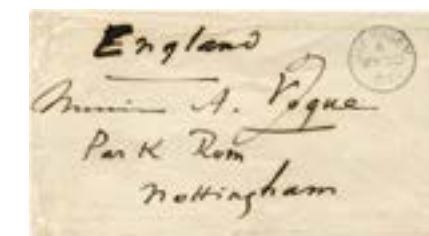 England
A. Vogue
Park Rom
Nottingham